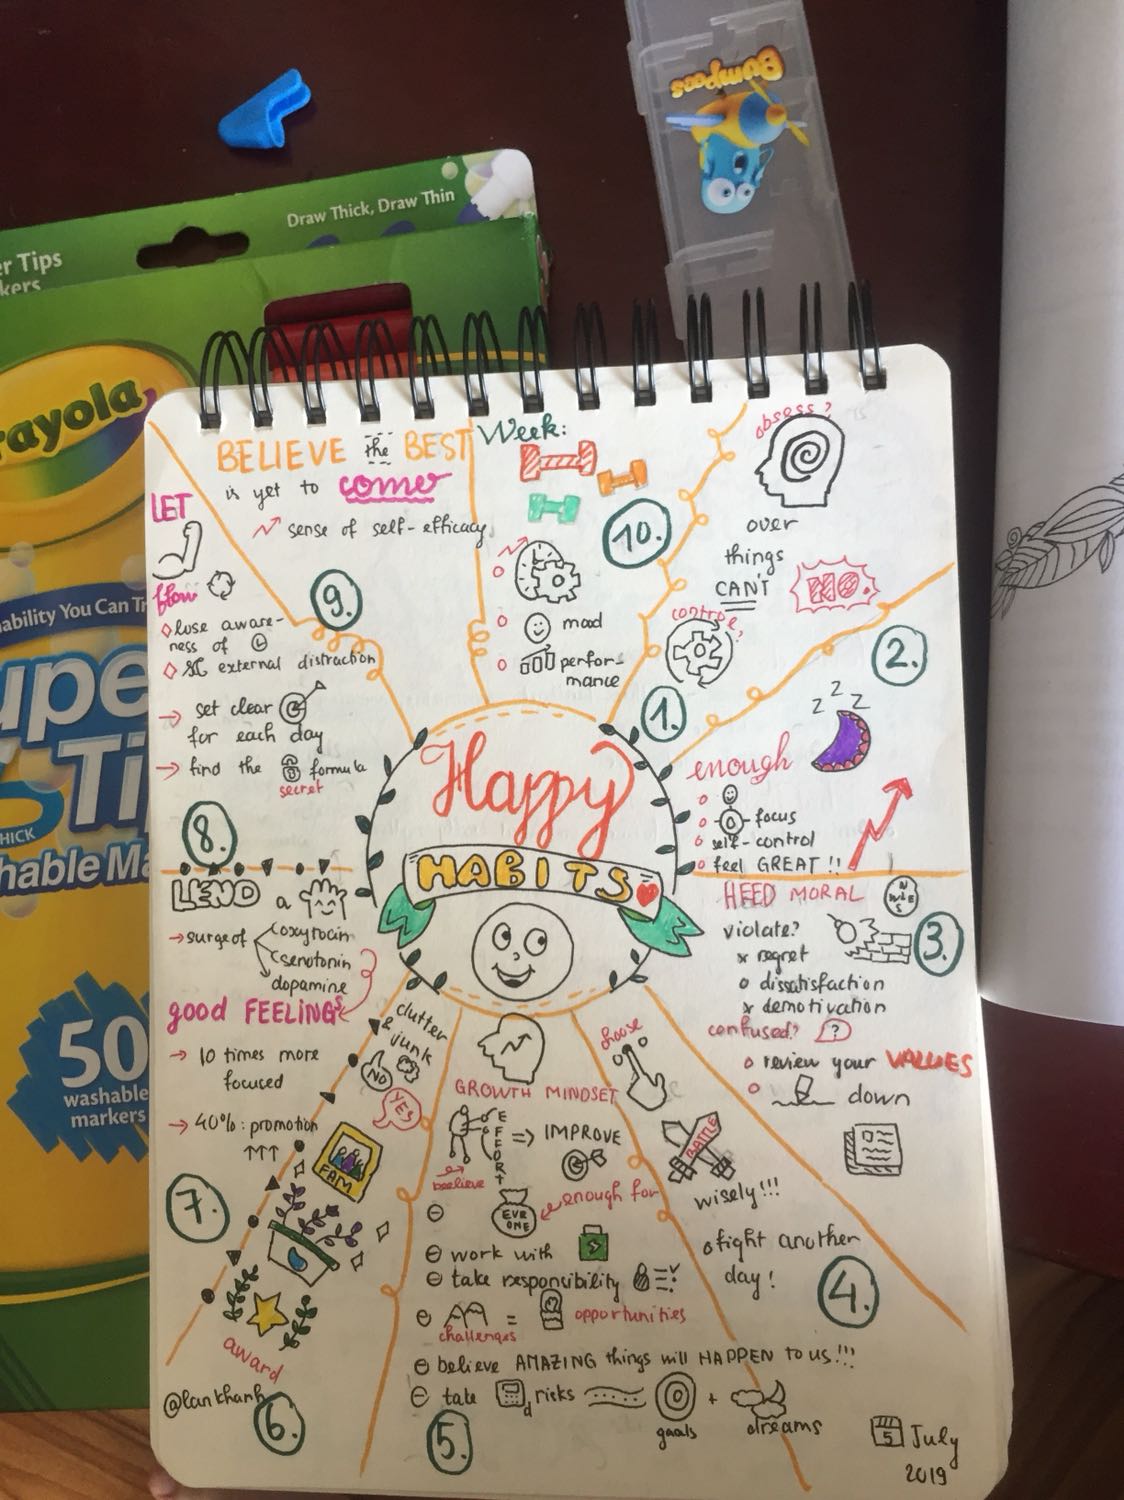 Bumpees
Draw Thick, Draw Thin
er Tips
kers
rayola
ability You Can Tr
upe
Ti
HICK
hable Ma
50
washable
markers
Happy
HABITS
obsess?
over
things
CAN'T
control?
NO.
1.
2.
z z z
enough
focus
self-control
feel GREAT !!
HEED MORAL
N
W E
S
3.
violate?
x regret
o dissatisfaction
x demotivation
confused? ?
o review your VALUES
down
choose
BATTLE
wisely!!!
fight another
day!
4.
GROWTH MINDSET
EFFORT
=> IMPROVE
beelieve
EVR
ONE
enough for
work with
take responsibility
= opportunities
challenges
believe AMAZING things will HAPPEN TO US!!!
take d risks
+
goals
dreams
5.
clutter
& junk
NO
YES
FAM
award
6.
@lankhanh
7.
LEND a
→ surge of
oxytocin
serotonin
dopamine
good FEELINGS
→ 10 times more
focused
→ 40%: promotion
↑↑↑
8.
LET
flow
lose aware-
ness of
external distraction
→ set clear
for each day
→ find the formula
secret
9.
BELIEVE the BEST
is yet to come
sense of self-efficacy
Week:
10.
mood
perfor-
mance
5 July
2019